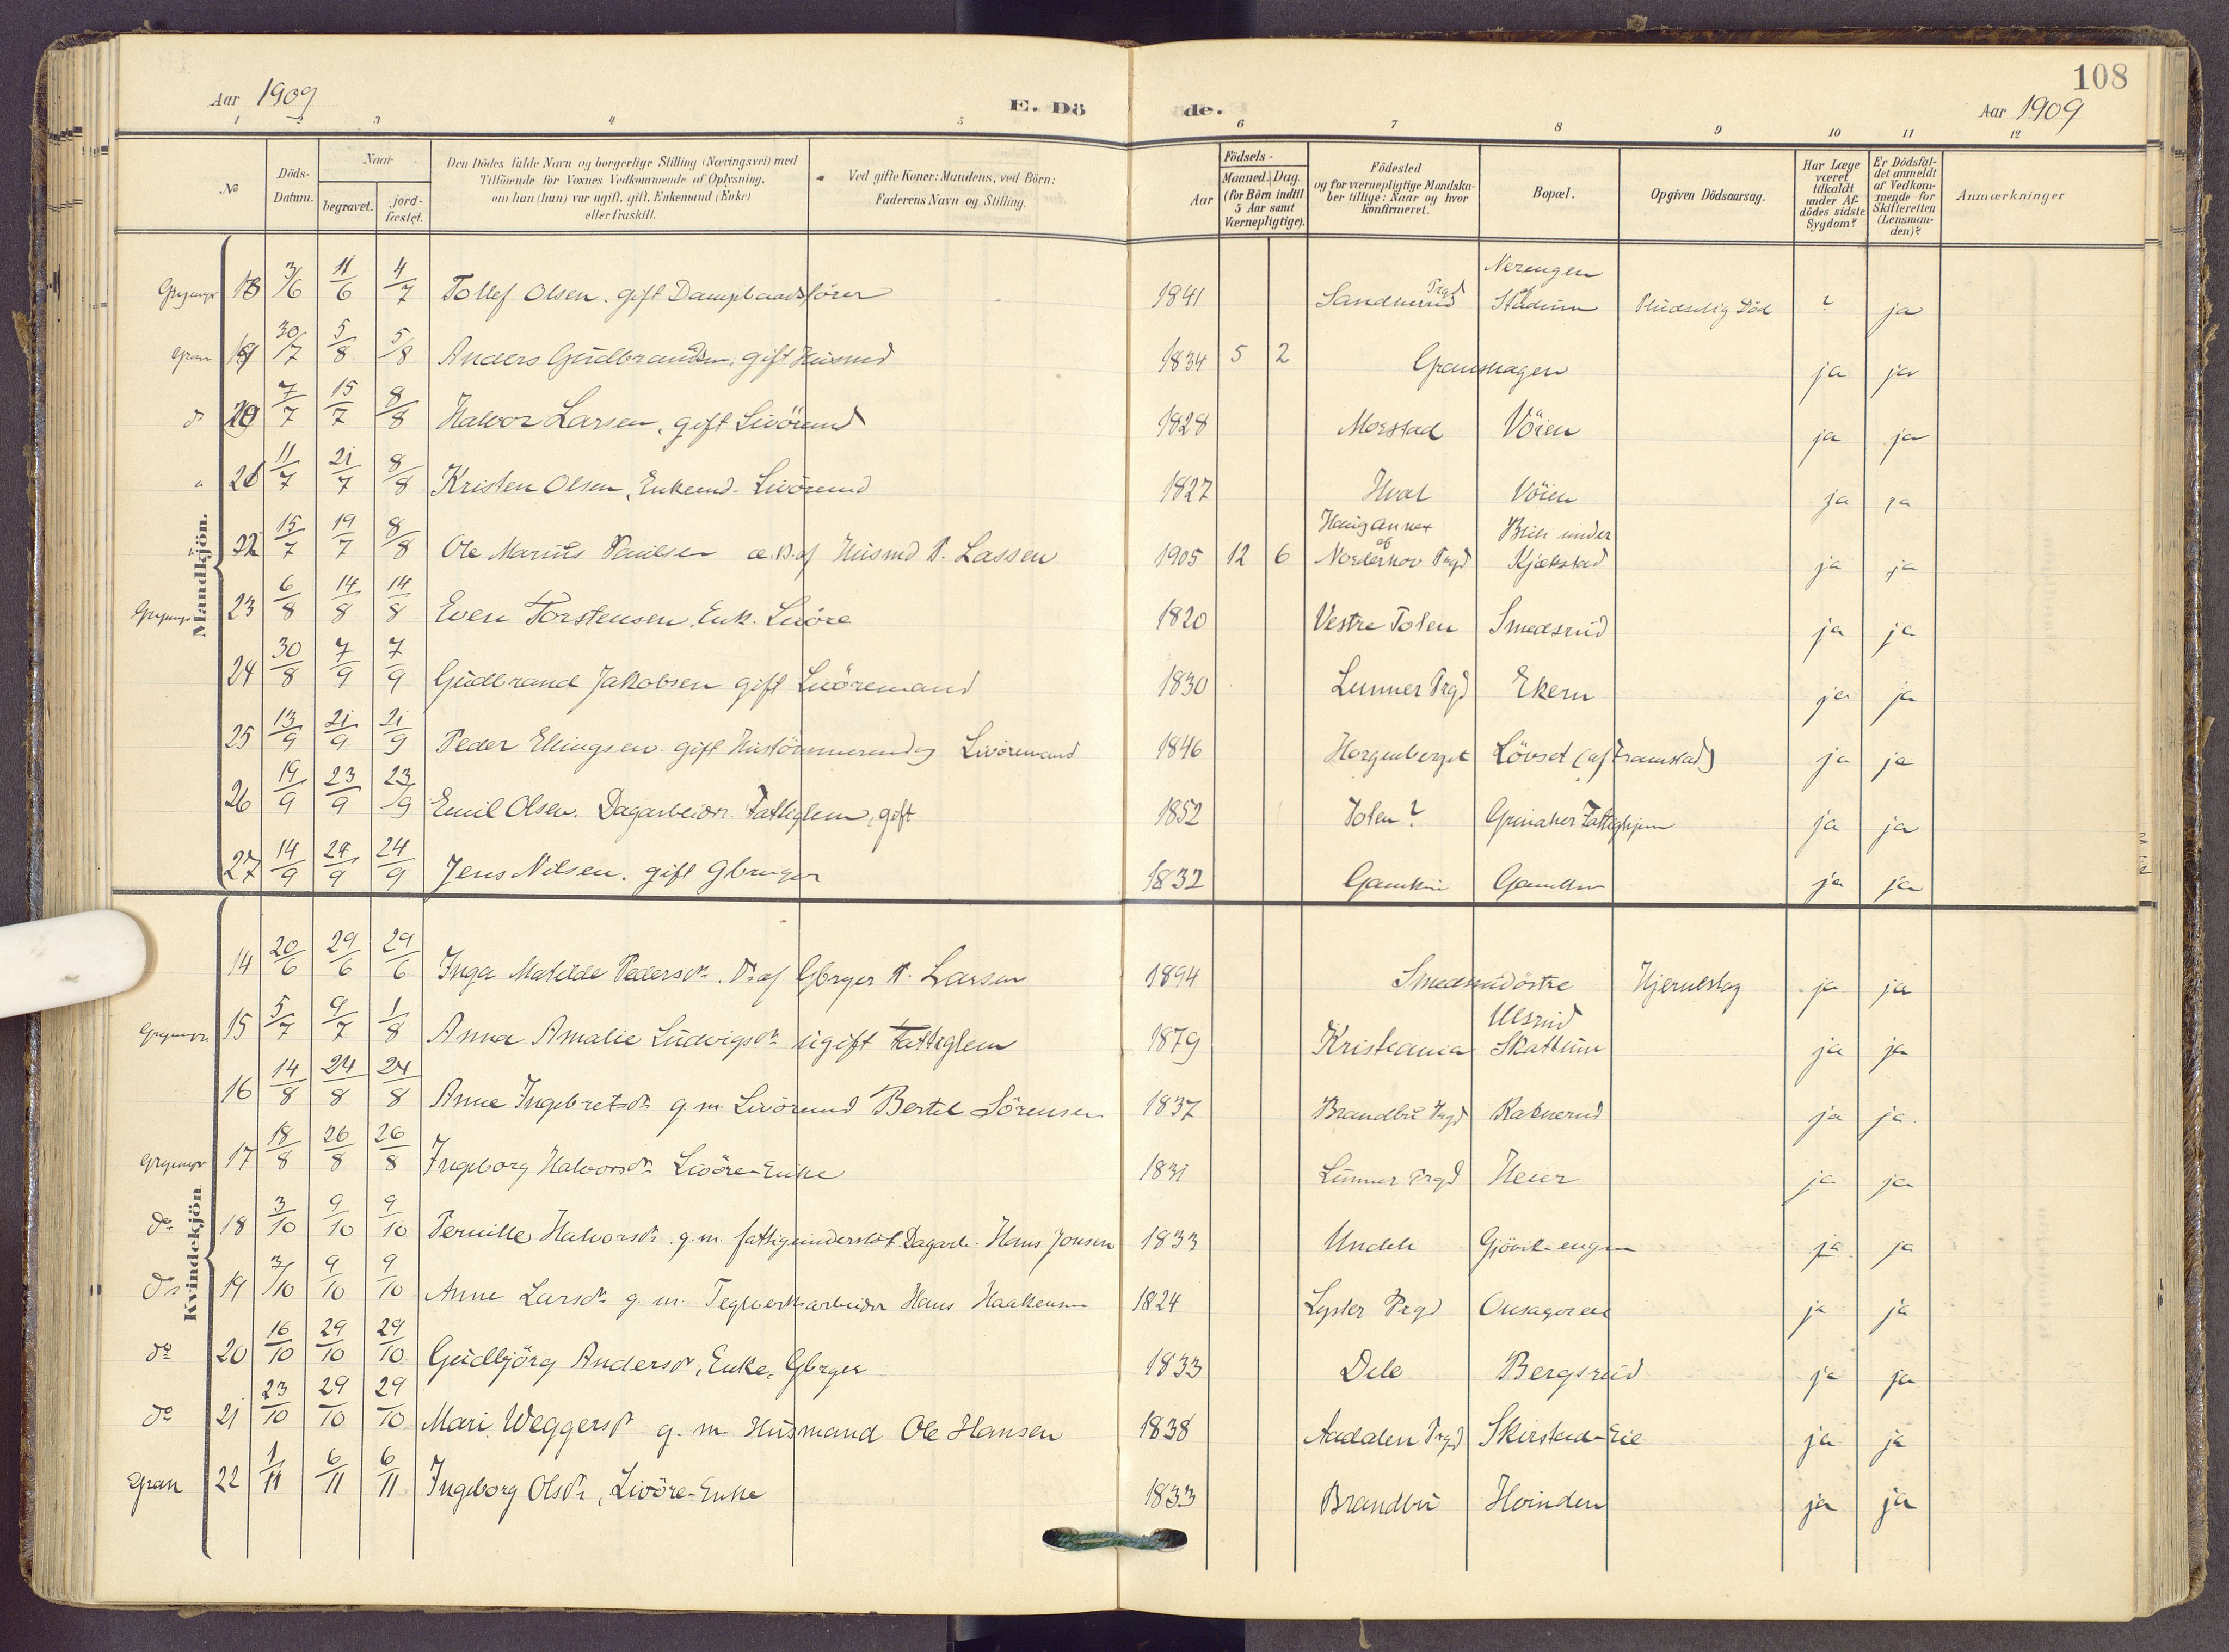 108
Aar 1909 E. Dö de. Aar 1909
1 2 3 4 5 6 7 8 9 10 11 12
No
Döds-Datum.
Naar
begravet.
jord-fæstet.
Den Dödes fulde Navn og borgerlige Stilling (Næringsvei) med
Tilföiende for Voxnes Vedkommende af Oplysning,
om han (hun) var ugift, gift, Enkemand (Enke)
eller fraskilt.
Ved gifte Koner: Mandens, ved Börn:
Faderens Navn og Stilling.
Aar
Födsels-
Maaned. Dag.
(for Börn indtil
5 Aar samt
Værnepligtige).
Födested
og for værnepligtige Mandska-
ber tillige: Naar og hvor
konfirmeret.
Bopæl.
Opgiven Dödsaarsag.
Har Læge
været
tilkaldt
under Af-
dödes sidste
Sygdom?
Er Dödsfal-
det anmeldt
af Vedkom-
mende for
Skifteretten
(Lensman-
den)?
Anmærkninger
Mandkjön.
18 3/6 11/6 4/7 Tollef Olsen. gift Dampbaadsförer 1841 Sandnerud Prgd Nerengen Stadum Pludselig Död ? ja
Gran 19 30/7 5/8 5/8 Anders Gudbrandsen, gift Husmd 1834 5 2 Granshagen ja ja
do 20 7/7 15/7 8/8 Halvor Larsen, gift Livörmd 1828 Morstad Vöien ja ja
" 21 11/7 21/7 8/8 Kristen Olsen, Enkemd. Livörmd 1827 Hval Vöien ja ja
22 15/7 19/7 8/8 Ole Marius Paulsen æ. B. af Husmd P. Lassen 1905 12 6 Haug annex af Norderhov Prgd Blili under Kjækstad ja ja
23 6/8 14/8 14/8 Even Torstensen, Enk. Livöre 1820 Vestre Toten Smedsrud ja ja
24 30/8 7/9 7/9 Gudbrand Jakobsen gift Livöremand 1830 Lunner Prgd Ekern ja ja
25 13/9 21/9 21/9 Peder Ellingsen. gift Livöremand 1846 Horgenberget Lövset (af Framstad) ja ja
26 19/9 23/9 23/9 Emil Olsen. Dagarbeider Fattiglem, gift 1852 Toten? Grinaker Fattighjem ja ja
27 14/9 24/9 24/9 Jens Nilsen. gift Gbruger 1832 Gamkin Gamkin ja ja
Kvindekjön
14 20/6 29/6 29/6 Inga Matilde Pedersdr. Dr af Gbrger P. Larsen 1894 Smedsrud östre Hjerneslag ja ja
15 5/7 9/7 1/8 Anna Amalie Ludvigsdr ugift Fattiglem 1879 Kristiania Ulsrud Skattum ja ja
16 14/8 24/8 24/8 Anne Ingebretsdr g. m. Livörmd Bertel Sörensen 1837 Brandbu Prgd ja ja
17 18/8 26/8 26/8 Ingeborg Halvorsdr Livöre-Enke 1831 Lunner Prgd Heier ja ja
do 18 3/10 9/10 9/10 Pernille Halvorsdr. g. m. fattigunderstöt. Dagarb. Hans Jonsen 1833 Undeli Gjövik-engen ja ja
do 19 3/10 9/10 9/10 Anne Larsdr g. m. Teglverksarbeider Hans Haakensen 1824 Lyster Prgd ja ja
do 20 16/10 29/10 29/10 Gudbjörg Andersdr, Enke, Gbrger 1833 Dele Bergsrud ja ja
do 21 23/10 29/10 29/10 Mari Weggersdr g. m. Husmand Ole Hansen 1838 Aadalen Prgd Skirstad-Eie ja ja
Gran 22 1/11 6/11 6/11 Ingeborg Olsdr, Livöre-Enke 1833 Brandbu Hvinden ja ja